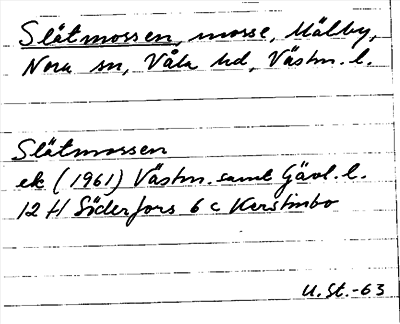 Slätmossen, mosse, Mälby,
Nora sn, Våla hd, Västm. l.
Slätmossen
ek (1961) Västm. samt Gävl. l.
12 H Söderfors 6 c Kerstinbo
U. St. -63